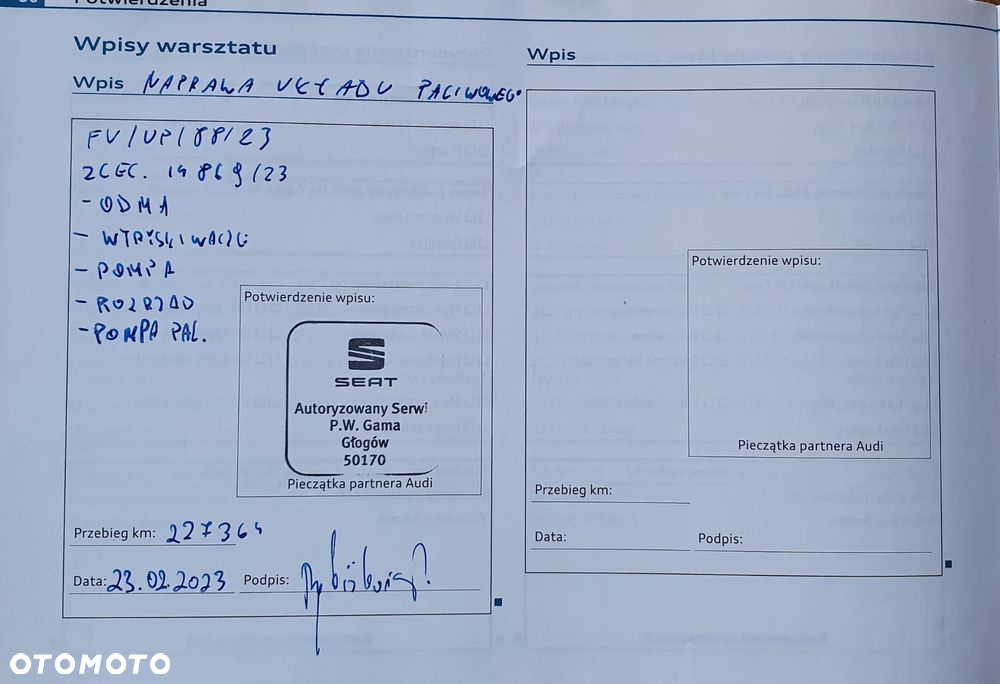 Potwierdzenia
Wpisy warsztatu
Wpis NAPRAWA UKŁADU PALIWOWEGO
FV/UP/88/23
ZLEC. 19869/23
- ODMA
- WTRYSKIWACZE
- POMPA
- ROZRZĄD
- POMPA PAL.
Potwierdzenie wpisu:
SEAT
Autoryzowany Serwi
P.W. Gama
Głogów
50170
Pieczątka partnera Audi
Przebieg km: 227364
Data: 23.02.2023 Podpis:
Wpis
Potwierdzenie wpisu:
Pieczątka partnera Audi
Przebieg km:
Data: Podpis:
OTOMOTO